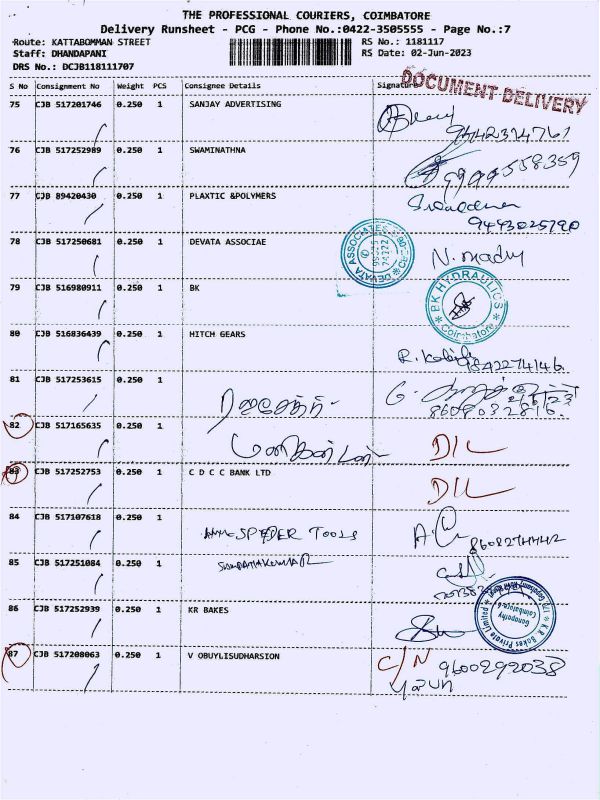 THE PROFESSIONAL COURIERS, COIMBATORE
Delivery Runsheet - PCG - Phone No.:0422-3505555 - Page No.:7
Route: KATTABOMMAN STREET RS No.: 1181117
Staff: DHANDAPANI RS Date: 02-Jun-2023
DRS No.: DCJB118111707
DOCUMENT DELIVERY
S No Consignment No Weight PCS Consignee Details Signature
75 CJB 517201746 0.250 1 SANJAY ADVERTISING
76 CJB 517252989 0.250 1 SWAMINATHNA
9994558359
77 CJB 89420430 0.250 1 PLAXTIC &POLYMERS
9443025790
78 CJB 517250681 0.250 1 DEVATA ASSOCIAE
DEVATA ASSOCIATES
N. madhu
79 CJB 516980911 0.250 1 BK
BK HYDRAULICS
Coimbatore
80 CJB 516836439 0.250 1 HITCH GEARS
9842274146
81 CJB 517253615 0.250 1
8608032816
82 CJB 517165635 0.250 1
D/L
83 CJB 517252753 0.250 1 C D C C BANK LTD
D/L
84 CJB 517107618 0.250 1
SPIDER TOOLS
85 CJB 517251084 0.250 1
SAMPATHKUMAR
86 CJB 517252939 0.250 1 KR BAKES
K.R. Bakes Private Limited
Ganapathy
Coimbatore-6
87 CJB 517208063 0.250 1 V OBUYLISUDHARSION
C/N 9600292038